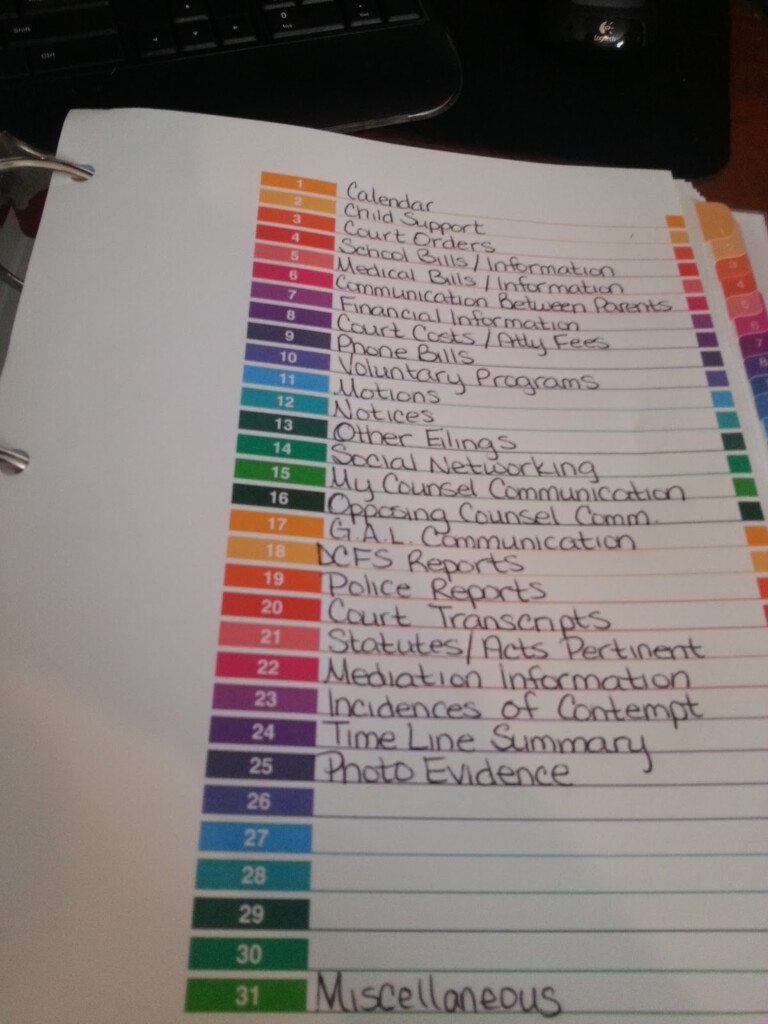 Logitech
1 Calendar
2 Child Support
3 Court Orders
4 School Bills/Information
5 Medical Bills/Information
6 Communication Between Parents
7 Financial Information
8 Court Costs/Atty Fees
9 Phone Bills
10 Voluntary Programs
11 Motions
12 Notices
13 Other Filings
14 Social Networking
15 My Counsel Communication
16 Opposing Counsel Comm.
17 G.A.L. Communication
18 DCFS Reports
19 Police Reports
20 Court Transcripts
21 Statutes/Acts Pertinent
22 Mediation Information
23 Incidences of Contempt
24 Time Line Summary
25 Photo Evidence
26
27
28
29
30
31 Miscellaneous